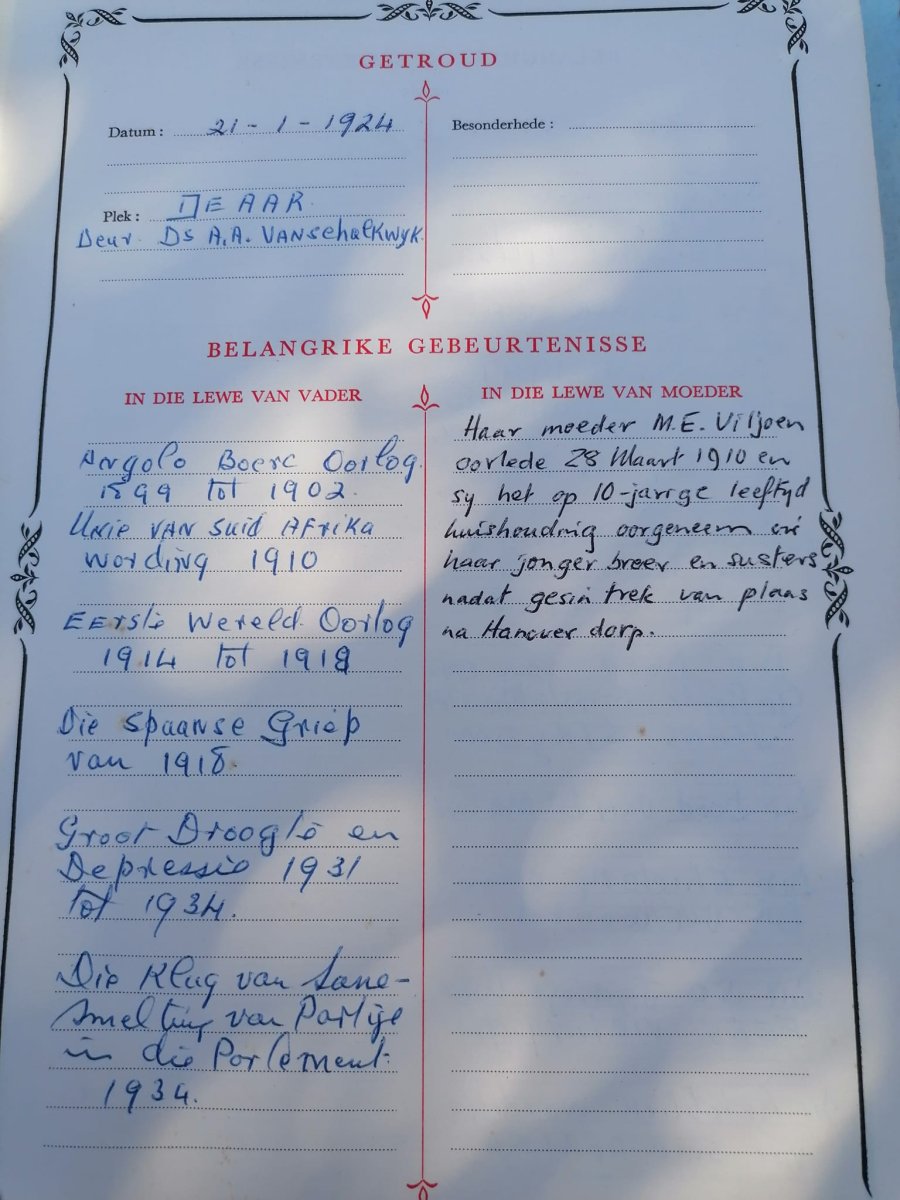 GETROUD
Datum : 21 - 1 - 1924
Besonderhede :
Plek : DE AAR.
Deur. Ds A.A. VANSchalkwyk
BELANGRIKE GEBEURTENISSE
IN DIE LEWE VAN VADER
Angolo Boere Oorlog.
1899 tot 1902.
Unie VAN Suid AFrika
wording 1910
EErste Wereld Oorlog
1914 tot 1918
Die Spaanse Griep
van 1918.
Groot Droogte en
Depressie 1931
tot 1934.
Die Klug van Same-
smelting van Partye
in die Parlement.
1934.
IN DIE LEWE VAN MOEDER
Haar moeder M.E. Viljoen
oorlede 28 Maart 1910 en
sy het op 10-jarige leeftyd
huishouding oorgeneem vir
haar jonger broer en susters
nadat gesin trek van plaas
na Hanover dorp.